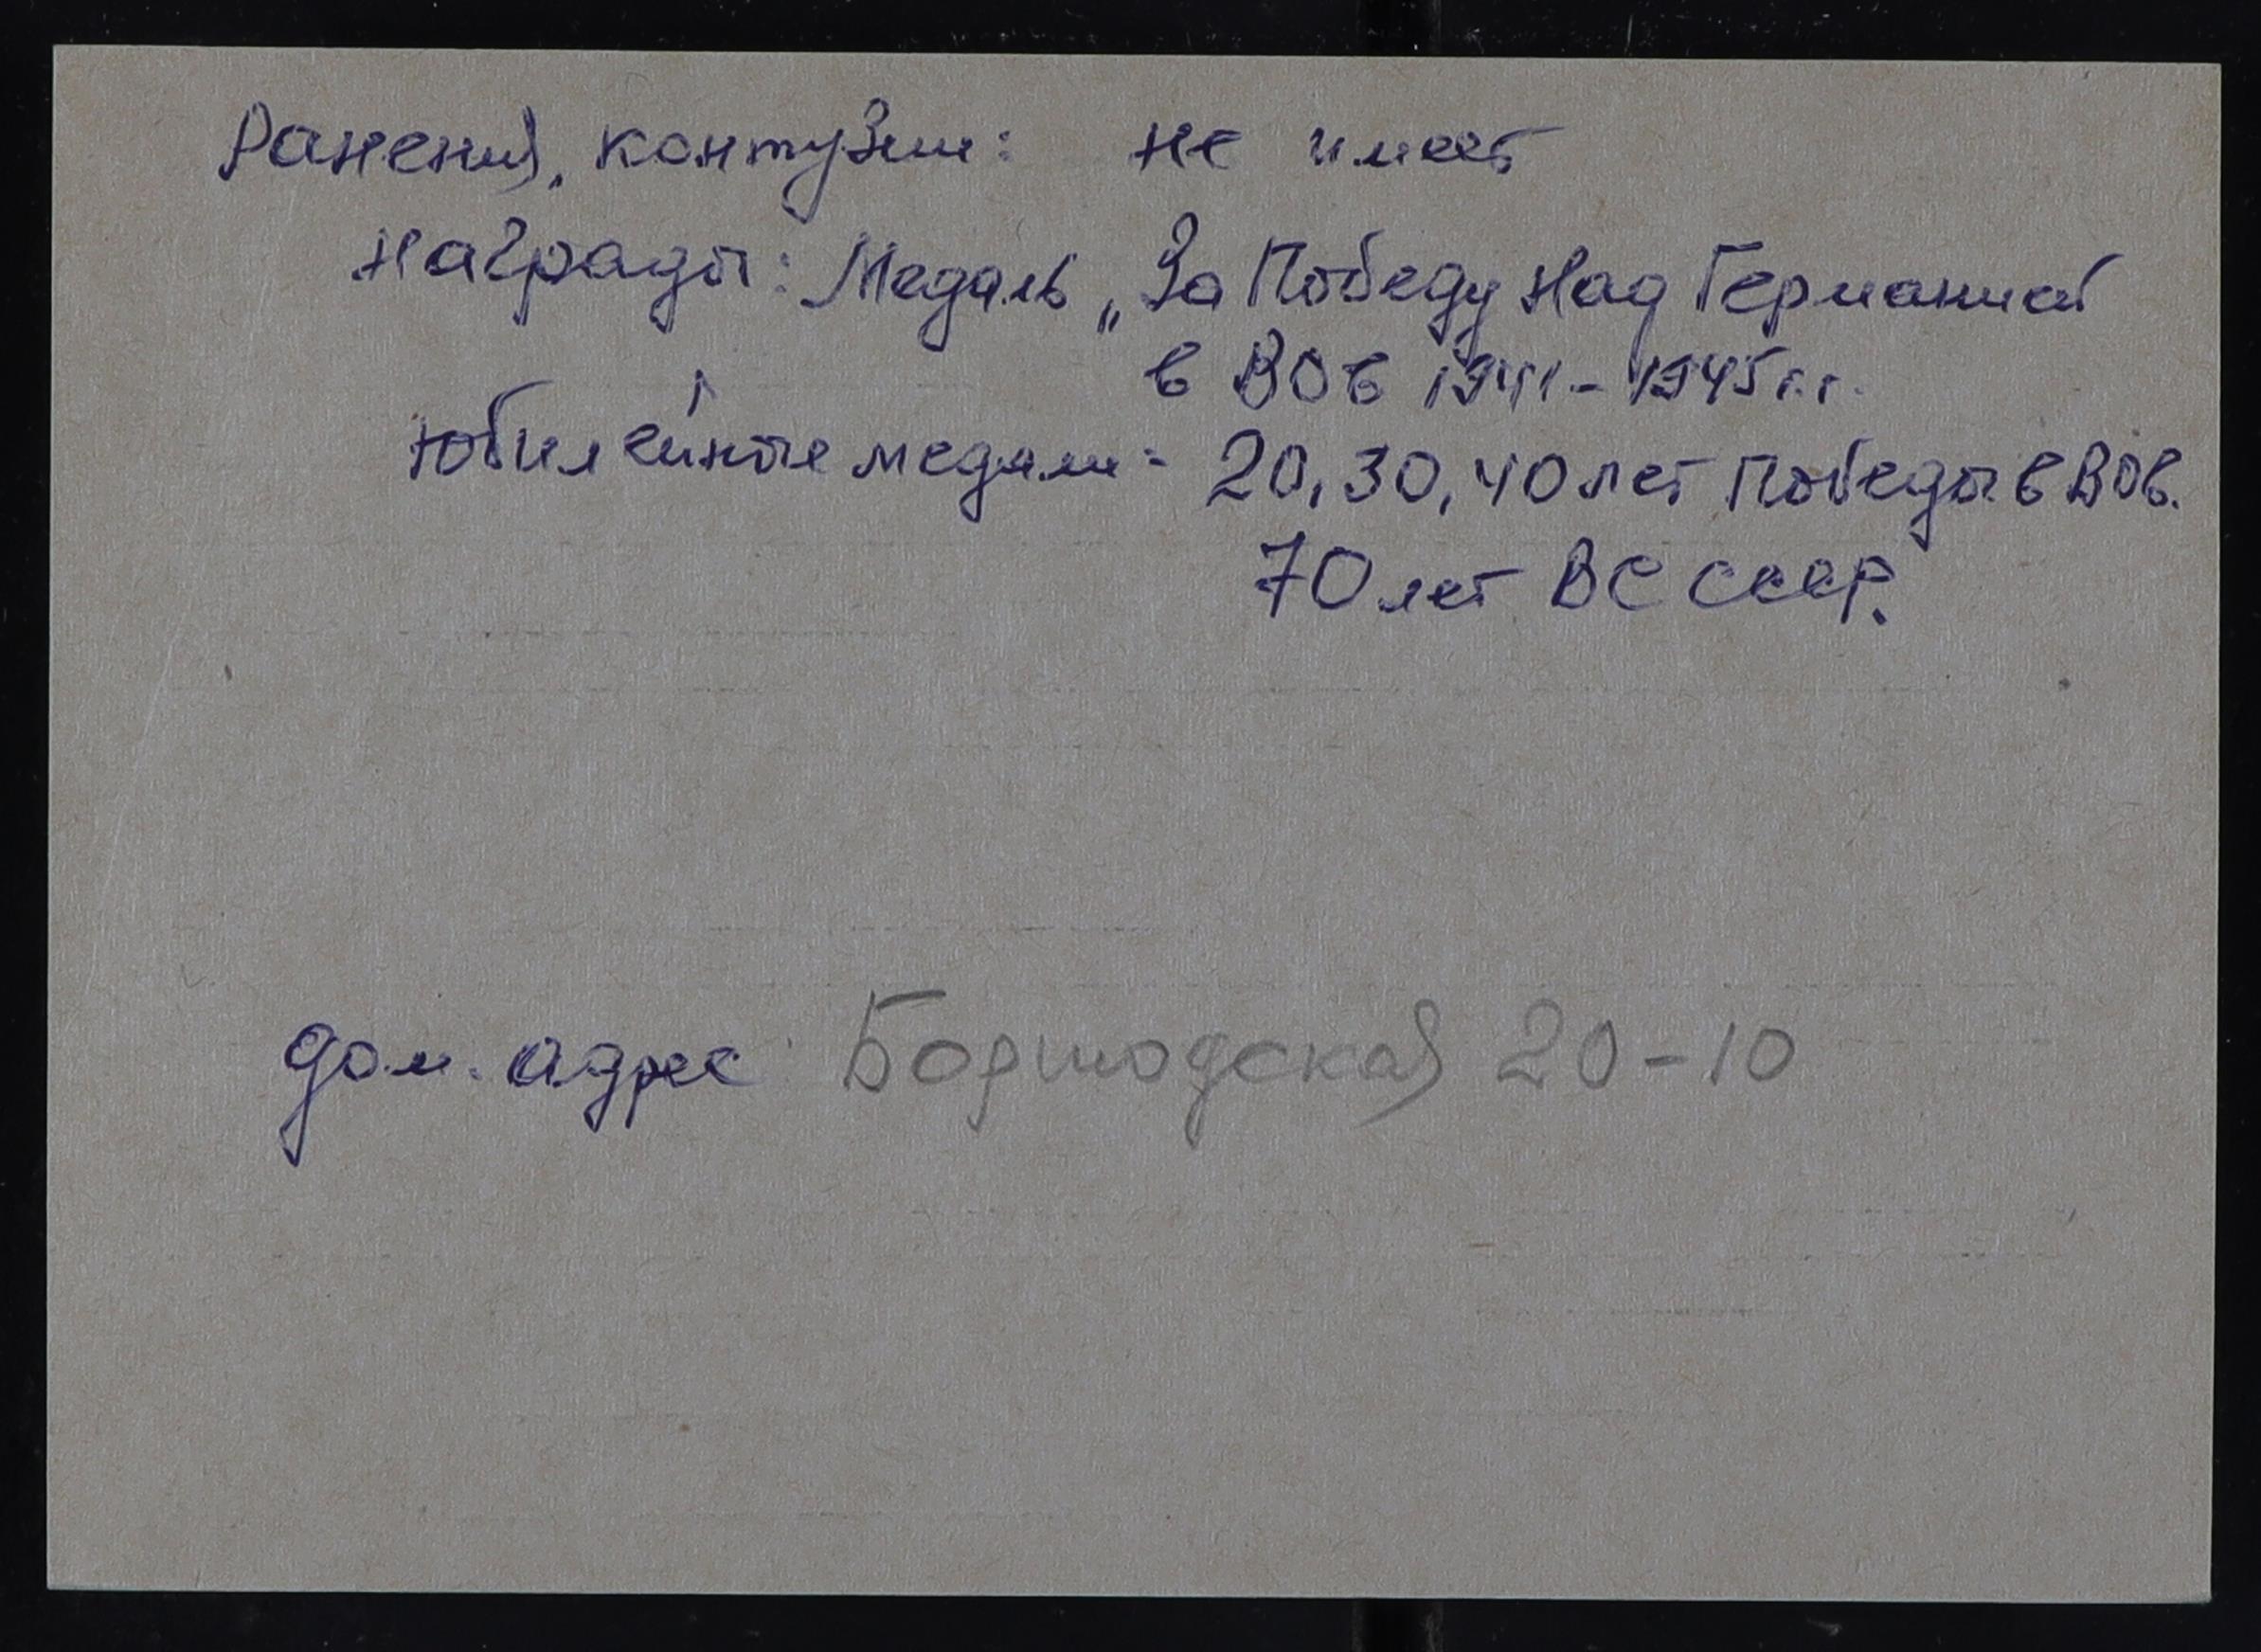 Ранения, контузии: не имеет
Награды: Медаль „За Победу над Германией
в ВОв 1941-1945г.г.
Юбилейные медали - 20, 30, 40 лет Победы в ВОв.
70 лет ВС СССР.
дом. адрес Боршодская 20-10